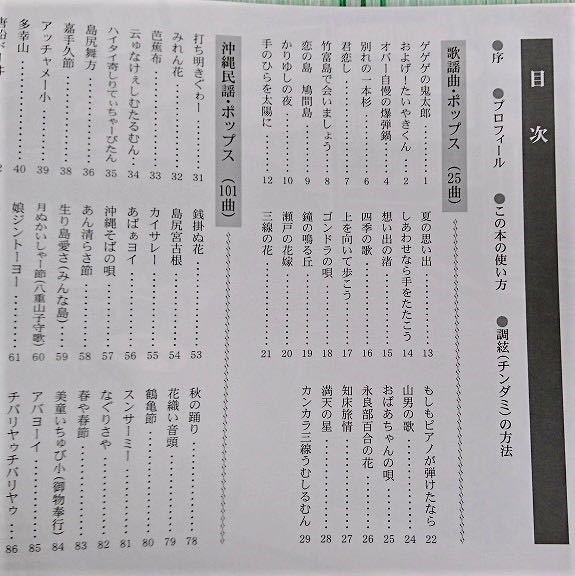 目次
●序 ●プロフィール ●この本の使い方 ●調絃(チンダミ)の方法
歌謡曲・ポップス (25曲)
ゲゲゲの鬼太郎 1
およげ!たいやきくん 2
オバー自慢の爆弾鍋 4
別れの一本杉 6
君恋し 7
竹富島で会いましょう 8
恋の島 鳩間島 9
かりゆしの夜 10
手のひらを太陽に 12
夏の思い出 13
しあわせなら手をたたこう 14
想い出の渚 15
四季の歌 16
上を向いて歩こう 17
ゴンドラの唄 18
鐘の鳴る丘 19
瀬戸の花嫁 20
三線の花 21
もしもピアノが弾けたなら 22
山男の歌 24
おばあちゃんの唄 25
永良部百合の花 26
知床旅情 27
満天の星 28
カンカラ三線うむしるむん 29
沖縄民謡・ポップス (101曲)
打ち明きくゎー 31
みれん花 32
芭蕉布 33
云ゅなけぇしむたるむん 34
ハイタイ寄しりてぃちゃーびたん 35
島尻舞方 36
嘉手久節 38
アッチャメー小 39
多幸山 40
銭掛ぬ花 53
島尻宮古根 54
カイサレー 55
あばぁヨイ 56
沖縄そばの唄 57
あん清らさ節 58
生り島愛さ(みんな島) 59
月ぬかいしゃー節(八重山子守歌) 60
娘ジントーヨー 61
秋の踊り 78
花織い音頭 79
鶴亀節 80
スンサーミー 81
なぐりさや 82
春や春節 83
美童いちゅび小(御物奉行) 84
アバヨーイ 85
チバリヤゥチバリヤゥ 86